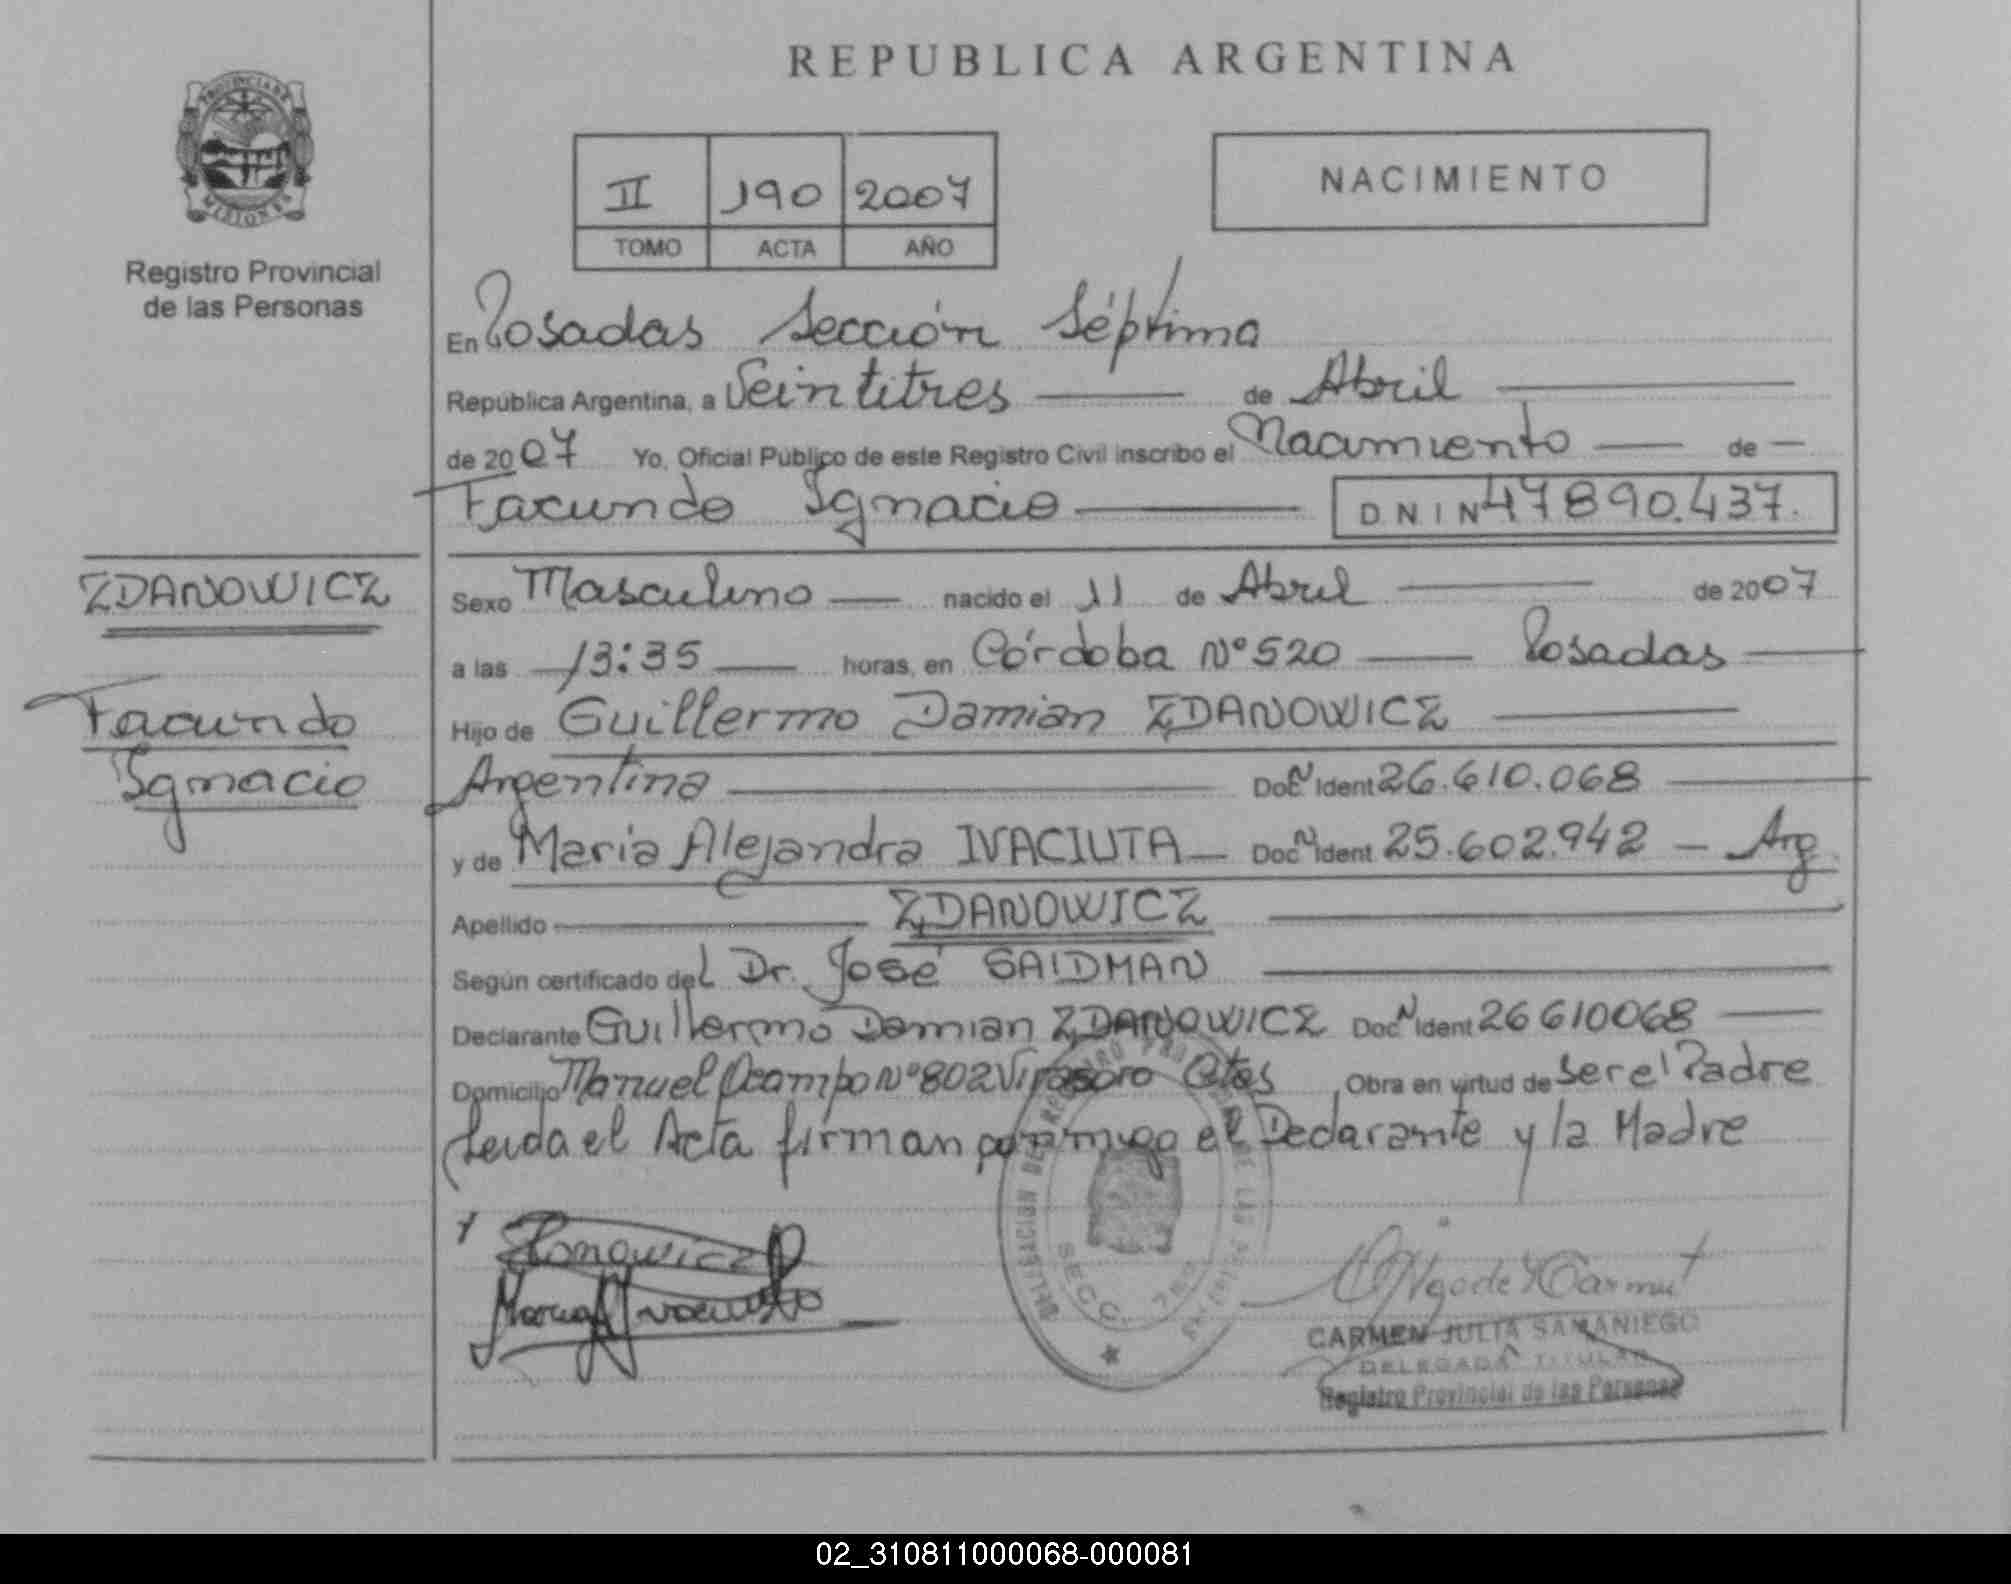 REPUBLICA ARGENTINA
PROVINCIA DE
MISIONES
Registro Provincial
de las Personas
II 190 2007
TOMO ACTA AÑO
NACIMIENTO
En Posadas Sección Séptima
República Argentina, a Veintitres de Abril
de 2007 Yo, Oficial Público de este Registro Civil inscribo el Nacimiento de
Facundo Ignacio DNI N 47890.437.
ZDANOWICZ
Facundo
Ignacio
Sexo Masculino nacido el 11 de Abril de 2007
a las 13:35 horas, en Córdoba Nº 520 Posadas
Hijo de Guillermo Damian ZDANOWICZ
Argentina Doc N Ident 26.610.068
y de Maria Alejandra IVACIUTA Doc N Ident 25.602.942 - Arg
Apellido ZDANOWICZ
Según certificado del Dr. José SAIDMAN
Declarante Guillermo Damian ZDANOWICZ Doc N Ident 26610068
Domicilio Manuel Ocampo Nº 802 Virasoro Ctes Obra en virtud de ser el Padre
Leida el Acta firman conmigo el Declarante y la Madre
CARMEN JULIA SAMANIEGO
DELEGADA TITULAR
Registro Provincial de las Personas
02_310811000068-000081